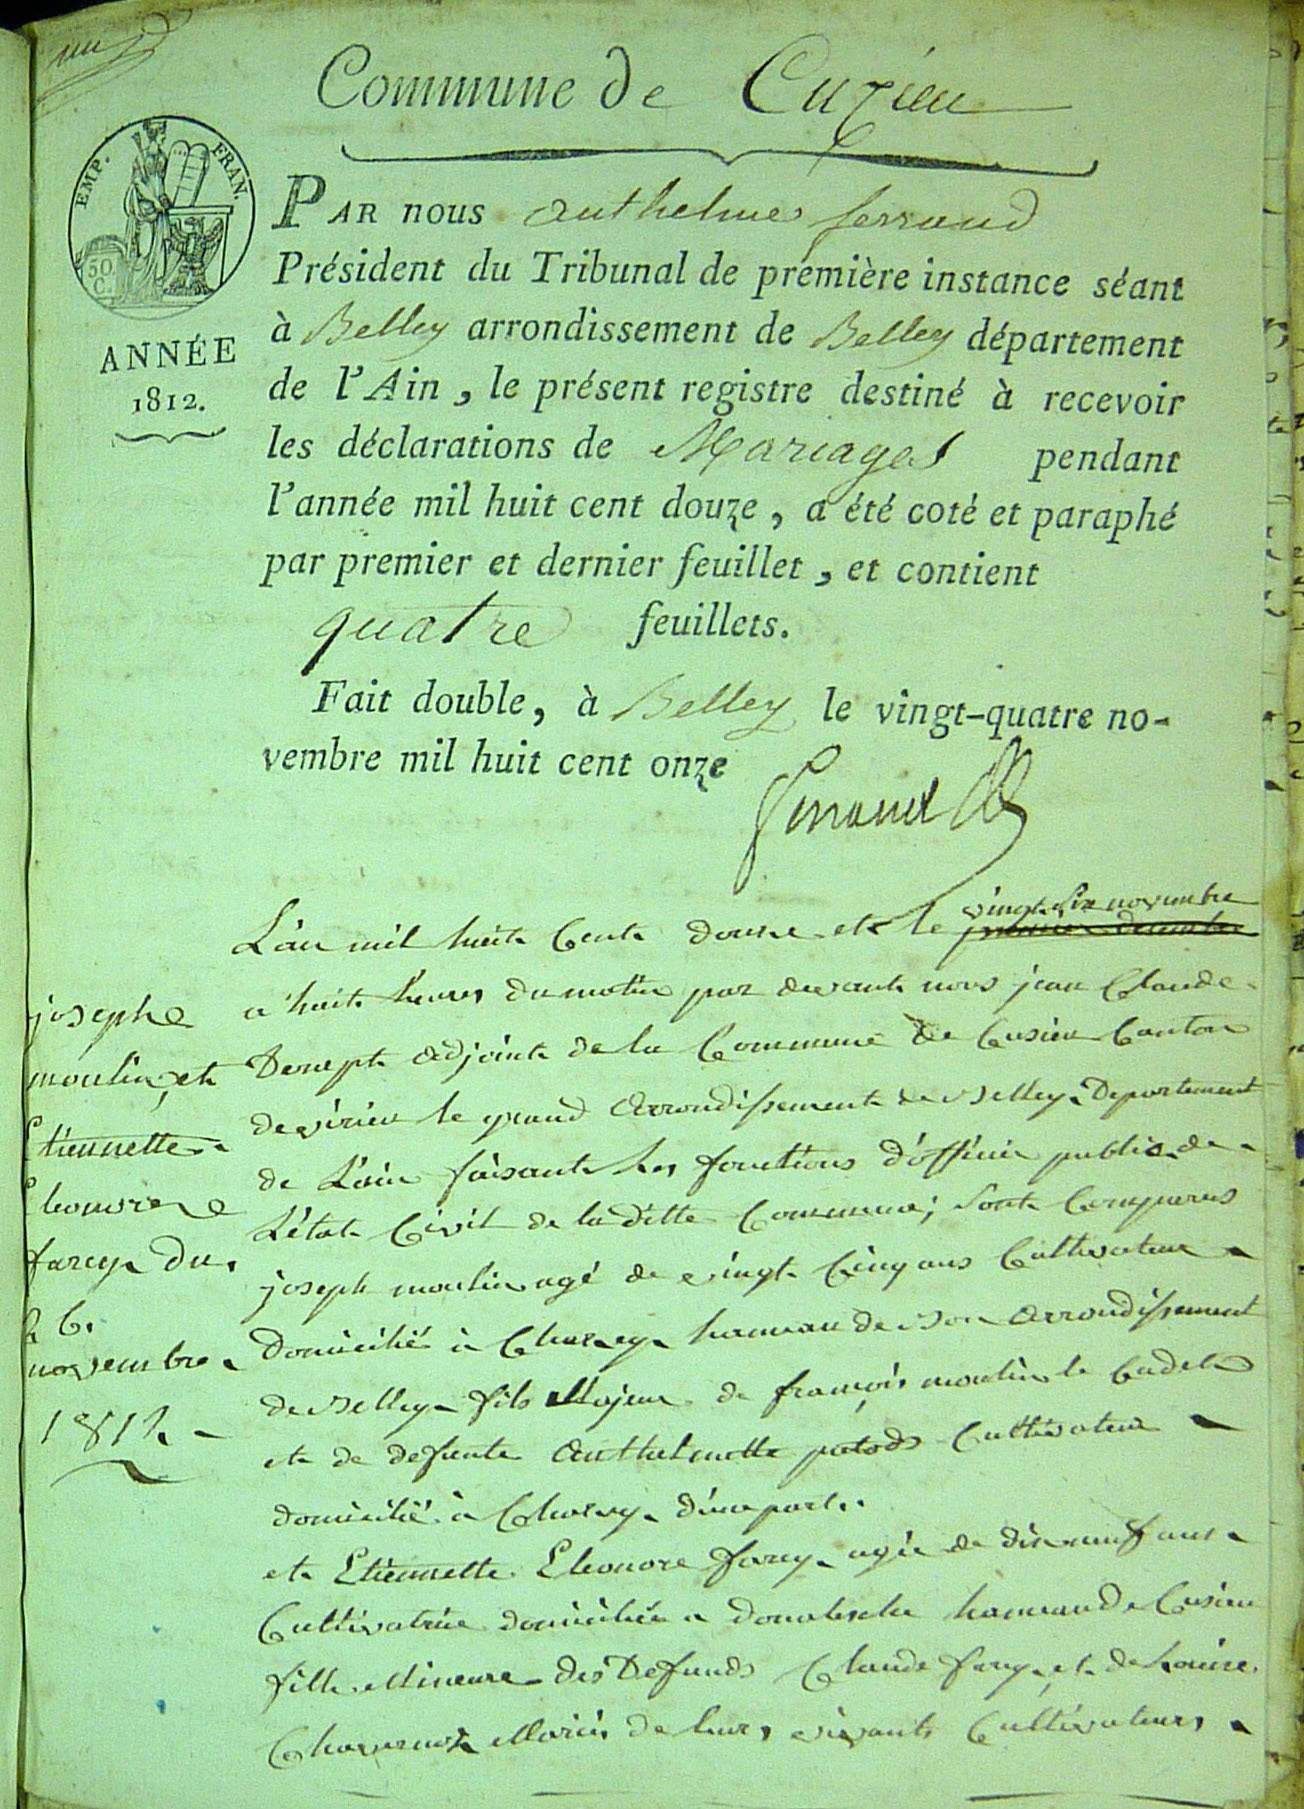 un
Commune de Cuzieu
EMP. FRAN.
50 C.
ANNÉE
1812.
PAR nous Anthelme ferrand
Président du Tribunal de première instance séant
à Belley arrondissement de Belley département
de l'Ain, le présent registre destiné à recevoir
les déclarations de Mariages pendant
l'année mil huit cent douze, a été coté et paraphé
par premier et dernier feuillet, et contient
quatre feuillets.
Fait double, à Belley le vingt-quatre no-
vembre mil huit cent onze
ferrand
josephe
moulin, et
Etiennette
Eleonore
farcy du
novembre
1812
vingt six novembre
L'an mil huit Cent douze et le premier decembre
a huit heures du matin par devant nous jean Claude
adjoint de la Commune de Cusieu Canton
de virieu le grand arrondissement de Belley Departement
de L'ain faisant les fonctions d'officier public de
L'état Civil de la ditte Commune; sont Comparus
joseph moulin agé de vingt Cinq ans Cultivateur
domicilié à hameau de arrondissement
de Belley fils Majeur de françois moulin le Cadet
et de defunte Anthelmette Cultivateur
domicilié à d'une part.
et Etiennette Eleonore farcy agée de dix neuf ans
Cultivatrice domiciliée a hameau de Cusieu
fille Mineure des Defunds Claude farcy et de Louise
Mariés de leurs vivants Cultivateurs